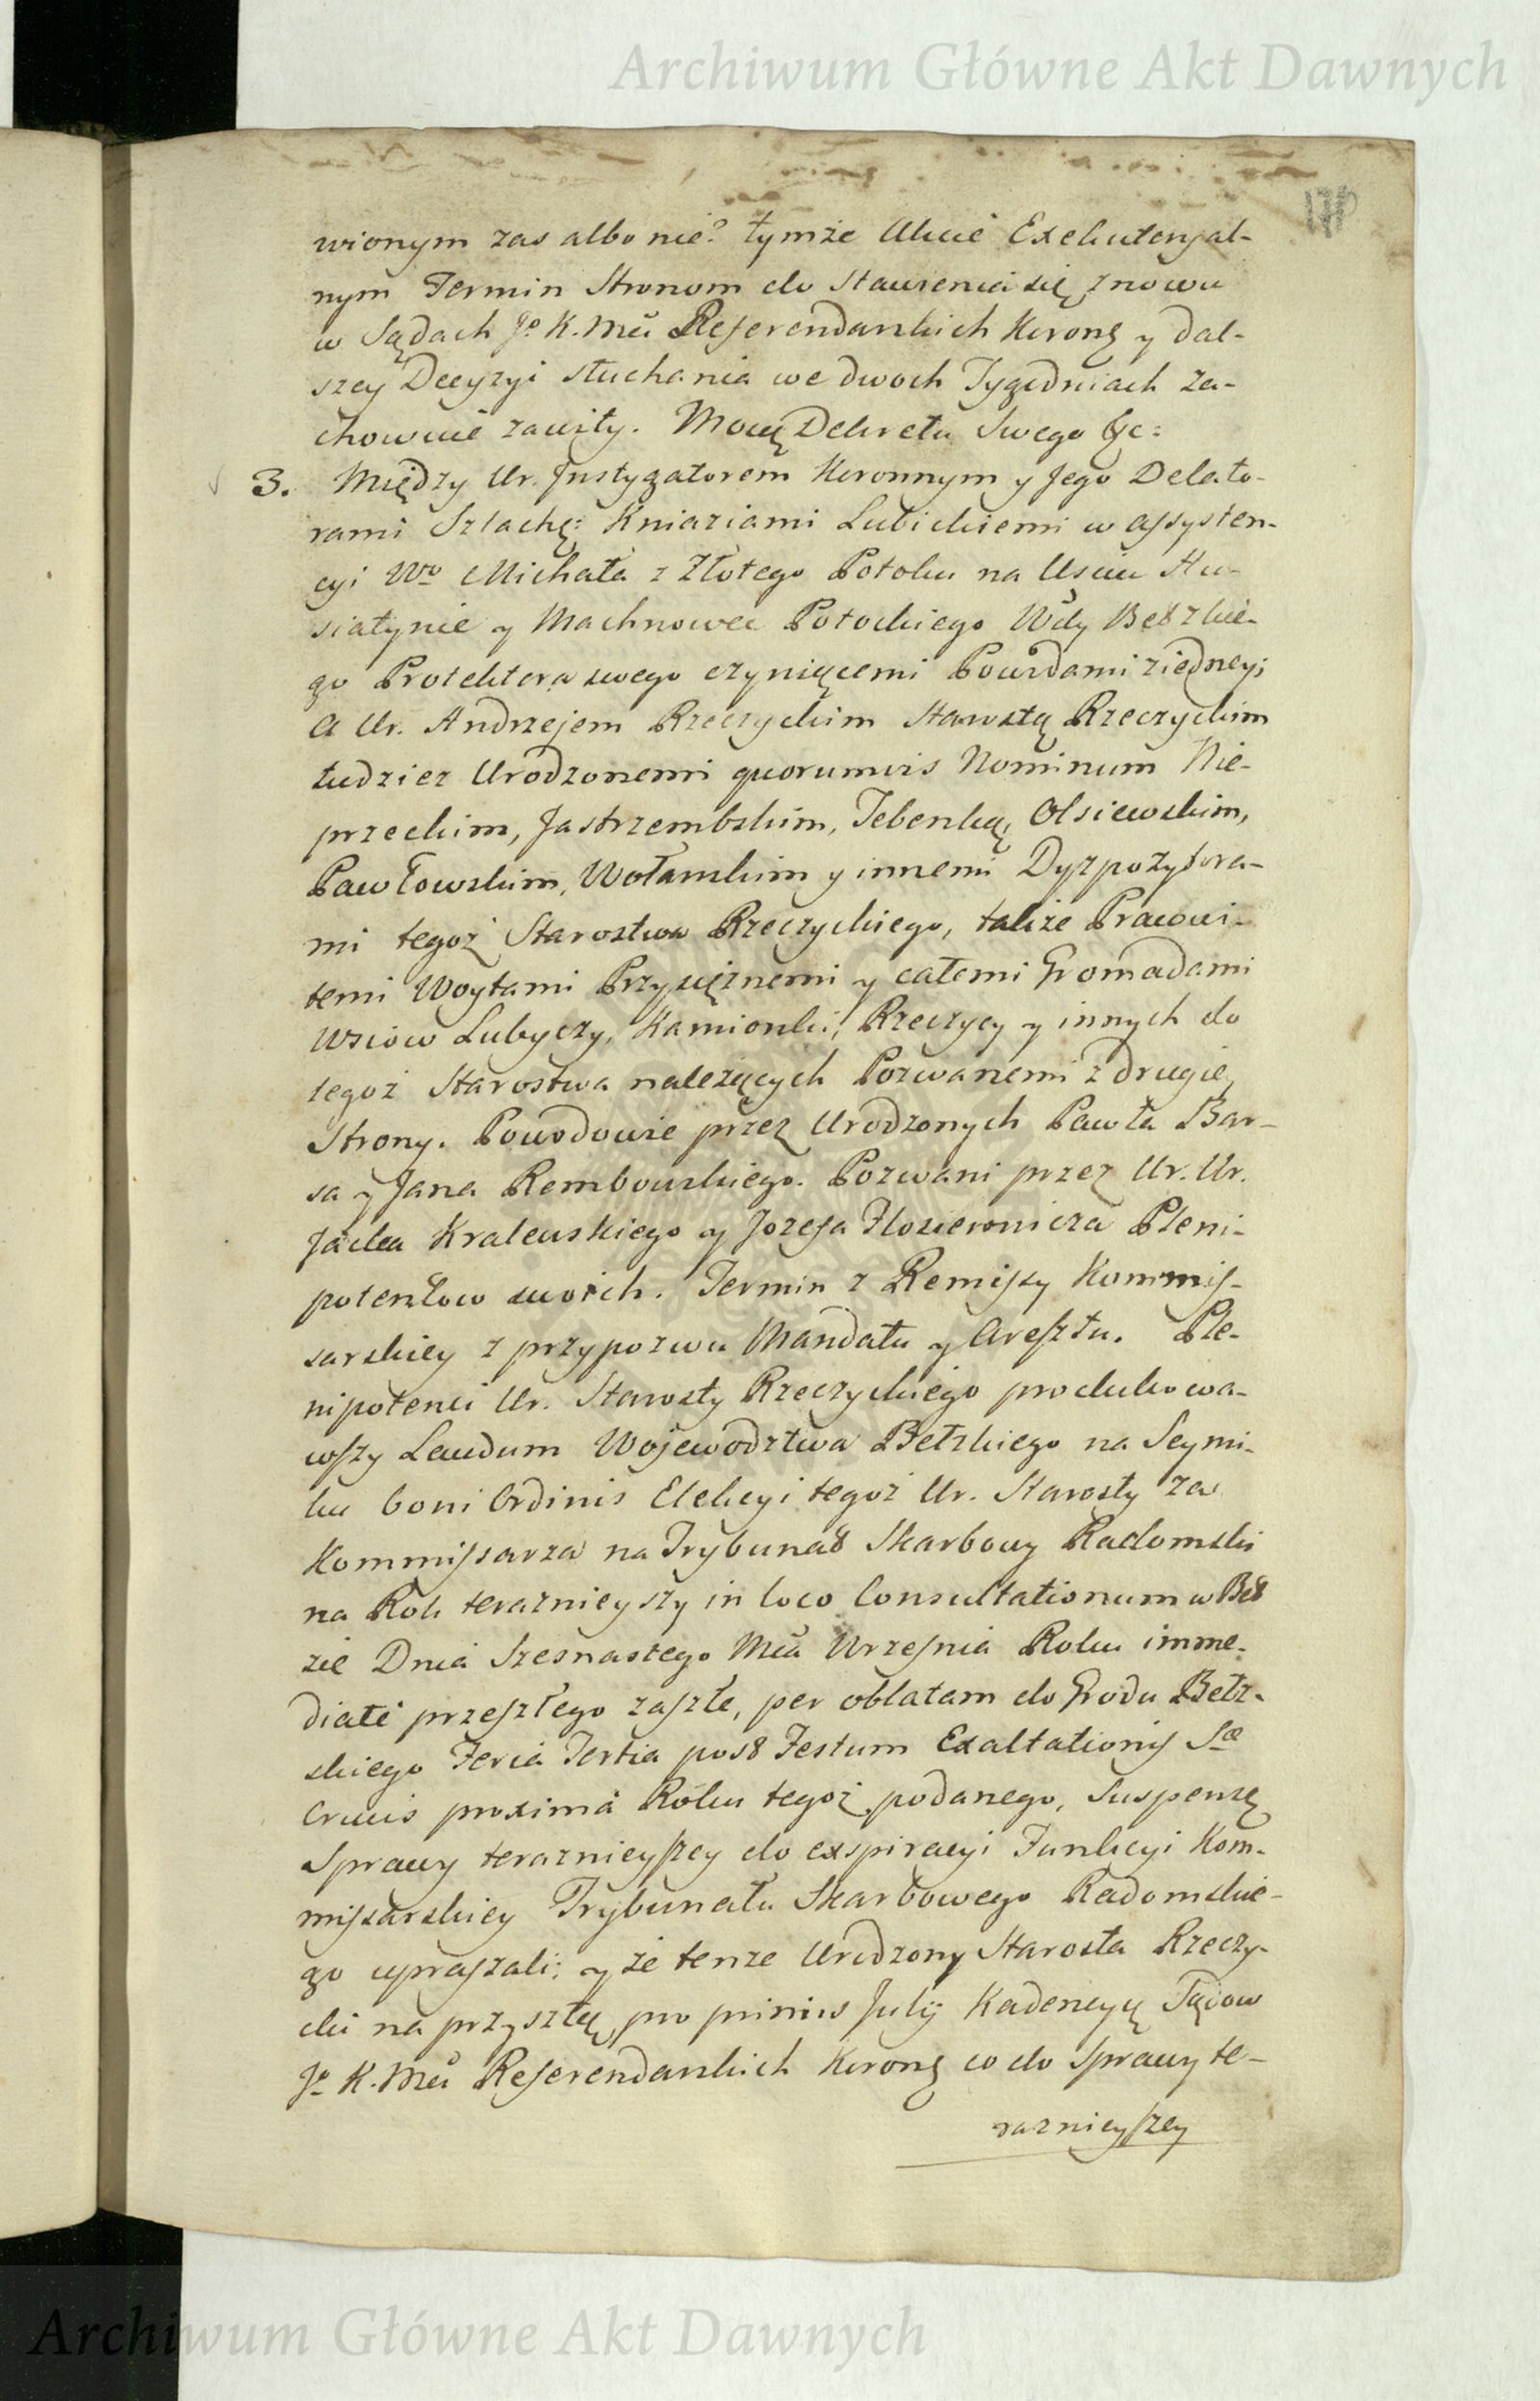 Archiwum Główne Akt Dawnych
wionym zas albo nie? tymże Akcie Exekutoryal-
nym Termin Stronom do Stawienia się znowu
w Sądach Jo K. Mci Referendarskich Koronę y dal-
szey Decyzyi słuchania we dwoch Tygodniach za-
chowuie zawity. Mocą Dekretu Swego &c:
3. Między Ur. Instygatorem Koronnym y Jego Delato-
rami Szlachę: Kniaziami Lubickiemi w assysten-
cyi Wo Michała z Złotego Potoku na Usciu Hu-
siatynie y Machnowce Potockiego Wdy Bełzkie-
go Protektora swego czyniącemi Powodami ziedney;
A Ur. Andrzejem Rzeczyckim Starostą Rzeczyckim
tudziez Urodzonemi quorumvis Nominum Nie-
przeckim, Jastrzembskim, Tebenką, Olsiewskim,
Pawłowskim, Wołanskim y innemi Dyzpozytora-
mi tegoż Starostwa Rzeczyckiego, także Pracowi-
temi Woytami Przysiężnemi y całemi Gromadami
Wsiow Lubyczy, Kamionki, Rzeczycy y innych do
tegoż Starostwa należących Pozwanemi z drugiey
Strony. Powodowie przez Urodzonych Pawła Bar-
sa y Jana Rembowskiego. Pozwani przez Ur. Ur.
Jacka Kralewskiego y Jozefa Pleni-
potentow swoich. Termin z Remissy Kommis-
sarskiey z przypozwu Mandatu y Aresztu. Ple-
nipotenci Ur. Starosty Rzeczyckiego produkowa-
wszy Laudum Wojewodztwa Bełzkiego na Seymi-
ku boni Ordinis Elekcyi tegoż Ur. Starosty za
Kommissarza na Trybunał Skarbowy Radomski
na Rok teraznieyszy in loco Consultationum w Beł
zie Dnia Szesnastego Mca Wrzesnia Roku imme-
diate przeszłego zaszłe, per oblatam do Grodu Bełz-
skiego Feria Tertia post Festum Exaltationis Sæ
Crucis proxima Roku tegoż podanego, Suspensę
Sprawy teraznieyszey do exspiracyi Funkcyi Kom-
missarskiey Trybunału Skarbowego Radomskie-
go upraszali; y że tenze Urodzony Starosta Rzeczy-
cki na przyszłą pro primis Julij Kadencyą Sądow
Jo K. Mci Referendarskich Koronę co do Sprawy te-
raznieyszey
Archiwum Główne Akt Dawnych